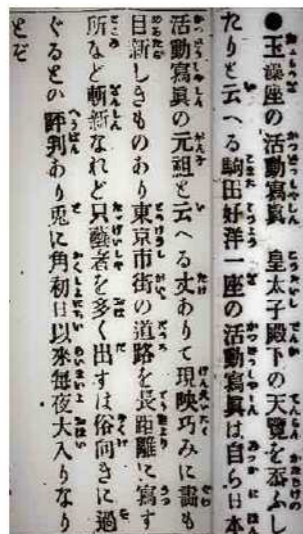 ●玉藻座の活動寫眞 皇太子殿下の天覽を忝ふし
たりと云へる駒田好洋一座の活動寫眞は自ら日本
活動寫眞の元祖と云へる丈ありて現映巧みに畵も
目新しきものあり東京市街の道路を長距離に寫す
所など斬新なれど只藝者を多く出すは俗向きに過
ぐるとの評判あり兎に角初日以來毎夜大入りなり
とぞ